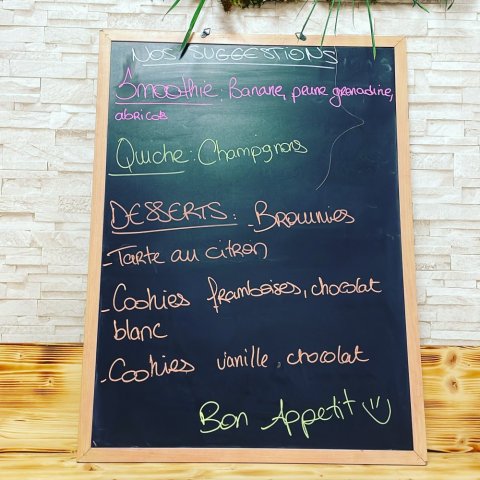 NOS SUGGESTIONS
Smoothie: Banane, prune grenadine,
abricots
Quiche: Champignons
DESSERTS: - Brownies
- Tarte au citron
- Cookies framboises, chocolat
blanc
- Cookies vanille, chocolat
Bon Appetit